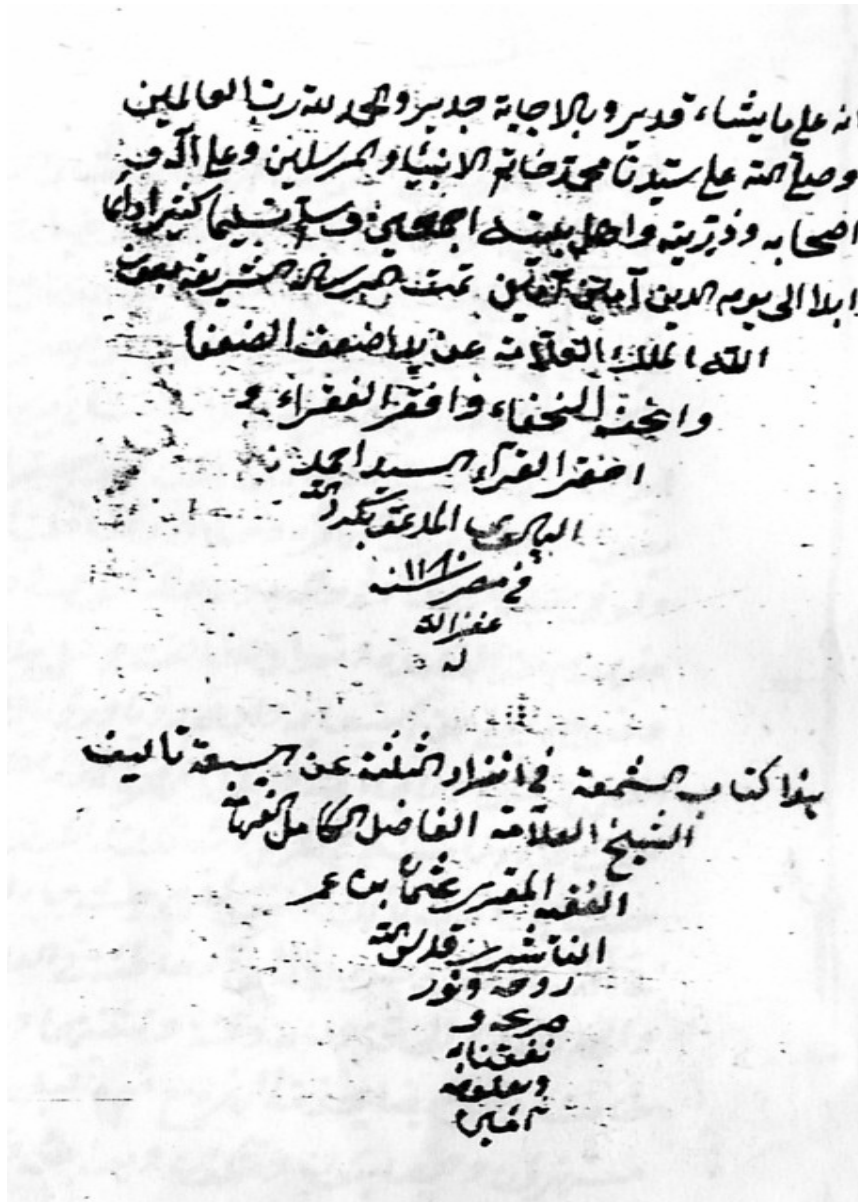 انه على ما يشاء قدير وبالاجابة جدير والحمد لله رب العالمين
وصلى الله على سيدنا محمد خاتم الانبياء والمرسلين وعلى آله و
اصحابه وذريته واهل بيته اجمعين وسلم تسليما كثيرا دائما
ابدا الى يوم الدين آمين آمين تمت الرسالة الشريفة بعون
الله الملك العلامة عن يد اضعف الضعفا
وانحف النحفاء وافقر الفقراء و
احقر القراء السيد احمد
البالوي المدعو
في مصر سنه ١١٨٠
غفر الله
له
هذا كتاب الشمعة في انفراد الثلثة عن السبعة تاليف
الشيخ العلامة الفاضل الكامل الفهامة
الفقيه المقرى عثمان بن عمر
الناشرى قدس الله
روحه ونور
ضريحه و
نفعنا به
وبعلومه
آمين